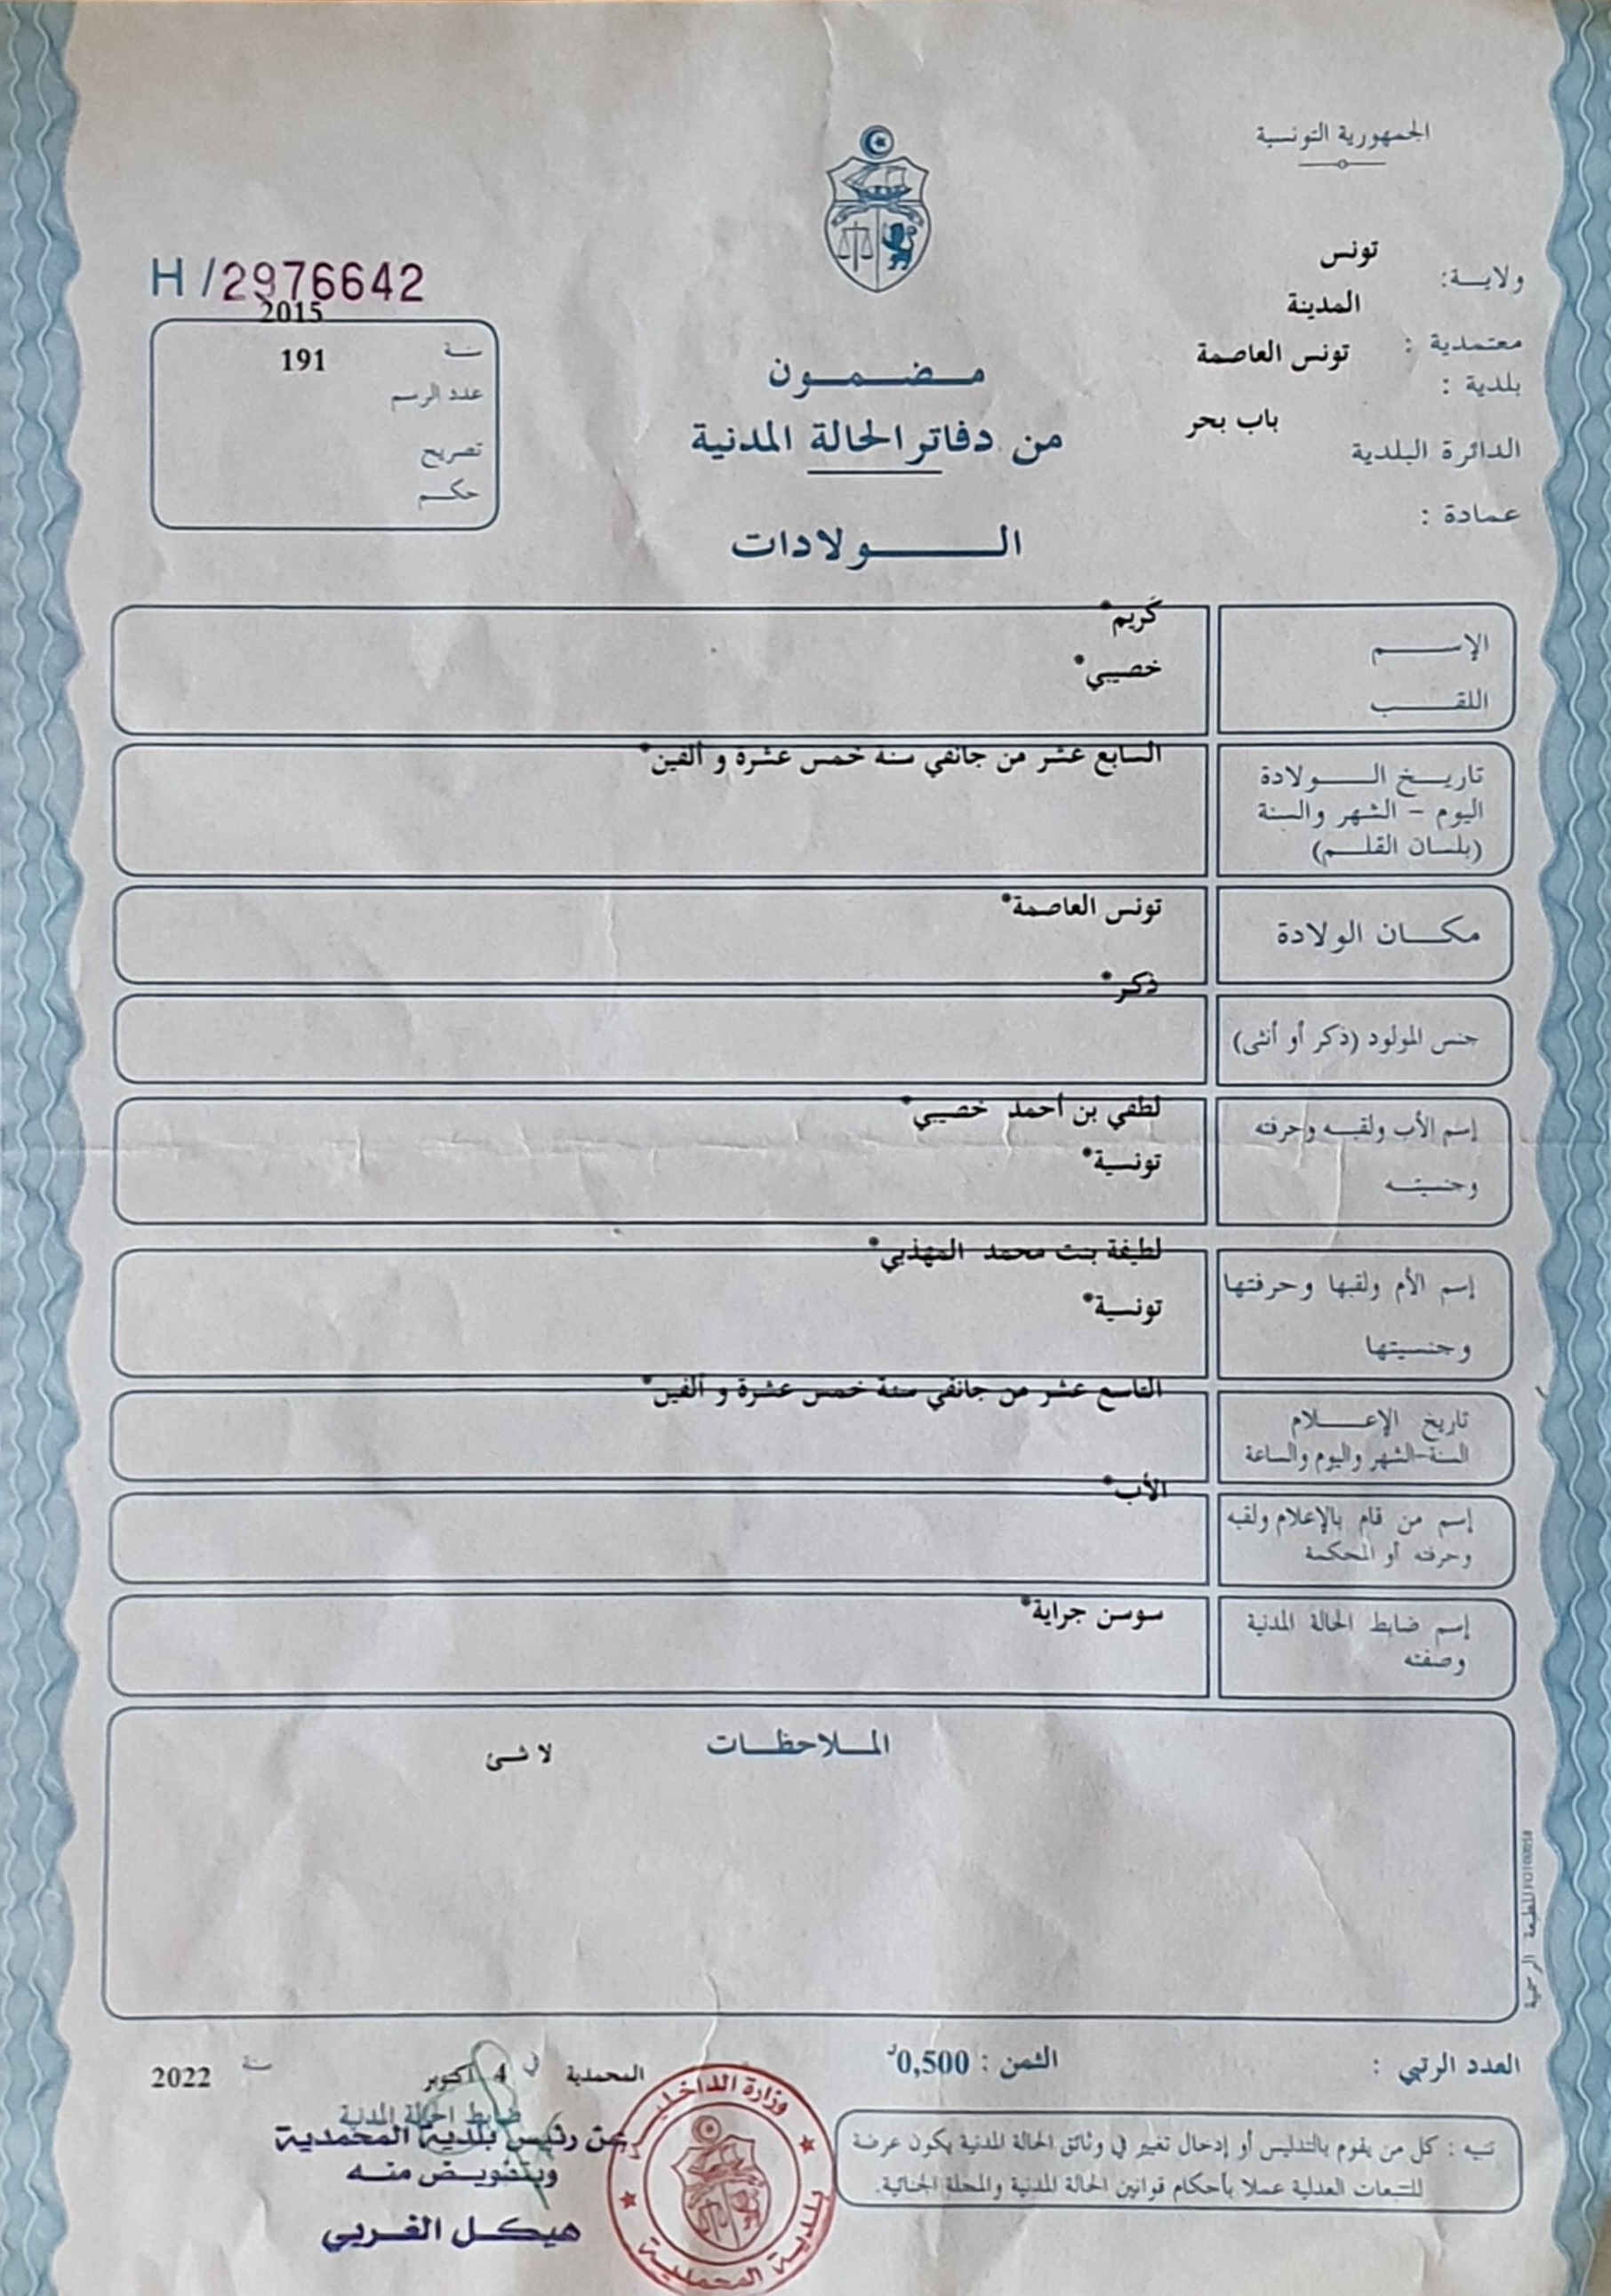 الجمهورية التونسية
ولاية: تونس
المدينة
معتمدية : تونس العاصمة
بلدية :
باب بحر
الدائرة البلدية
عمادة :
H/2976642
2015
سنة
191
عدد الرسم
تصريح
حكم
مضمون
من دفاتر الحالة المدنية
الولادات
الإسم كريم*
اللقب خصيبي*
تاريخ الولادة السابع عشر من جانفي سنة خمس عشرة و ألفين*
اليوم - الشهر والسنة
(بلسان القلم)
مكان الولادة تونس العاصمة*
جنس المولود (ذكر أو أنثى) ذكر*
إسم الأب ولقبه وحرفته لطفي بن أحمد خصيبي*
وجنسيته تونسية*
إسم الأم ولقبها وحرفتها لطيفة بنت محمد المهذبي*
وجنسيتها تونسية*
تاريخ الإعلام التاسع عشر من جانفي سنة خمس عشرة و ألفين*
السنة-الشهر واليوم والساعة
إسم من قام بالإعلام ولقبه الأب*
وحرفته أو المحكمة
إسم ضابط الحالة المدنية سوسن جراية*
وصفته
الملاحظات
لا شئ
المطبعة الرسمية
العدد الرتبي :
الثمن : 0,500د
المحمدية في 4 أكتوبر سنة 2022
ضابط الحالة المدنية
عن رئيس بلدية المحمدية
وبتفويض منه
هيكل الغربي
وزارة الداخلية
بلدية المحمدية
تنبيه : كل من يقوم بالتدليس أو إدخال تغيير في وثائق الحالة المدنية يكون عرضة
للتتبعات العدلية عملا بأحكام قوانين الحالة المدنية والمجلة الجنائية.